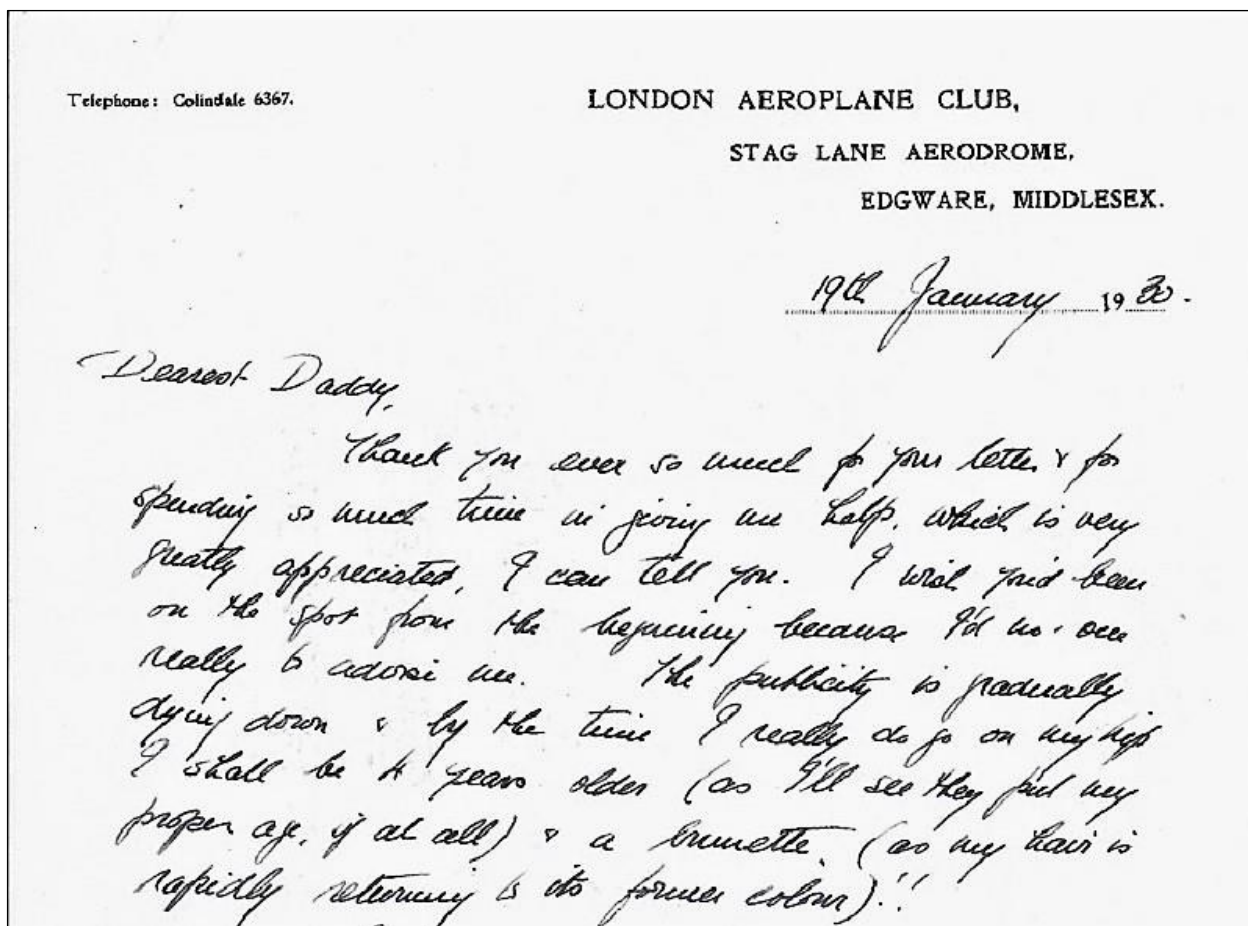 Telephone: Colindale 6367.
LONDON AEROPLANE CLUB,
STAG LANE AERODROME,
EDGWARE, MIDDLESEX.
19th January 1930.
Dearest Daddy,
Thank you ever so much for your letter & for
spending so much time in giving me help, which is very
greatly appreciated, I can tell you. I wish you'd been
on the spot from the beginning because I'd no-one
really to advise me. The publicity is gradually
dying down & by the time I really do go on my trip
I shall be 4 years older (as I'll see they put my
proper age, if at all) & a brunette, (as my hair is
rapidly returning to its former colour)!!